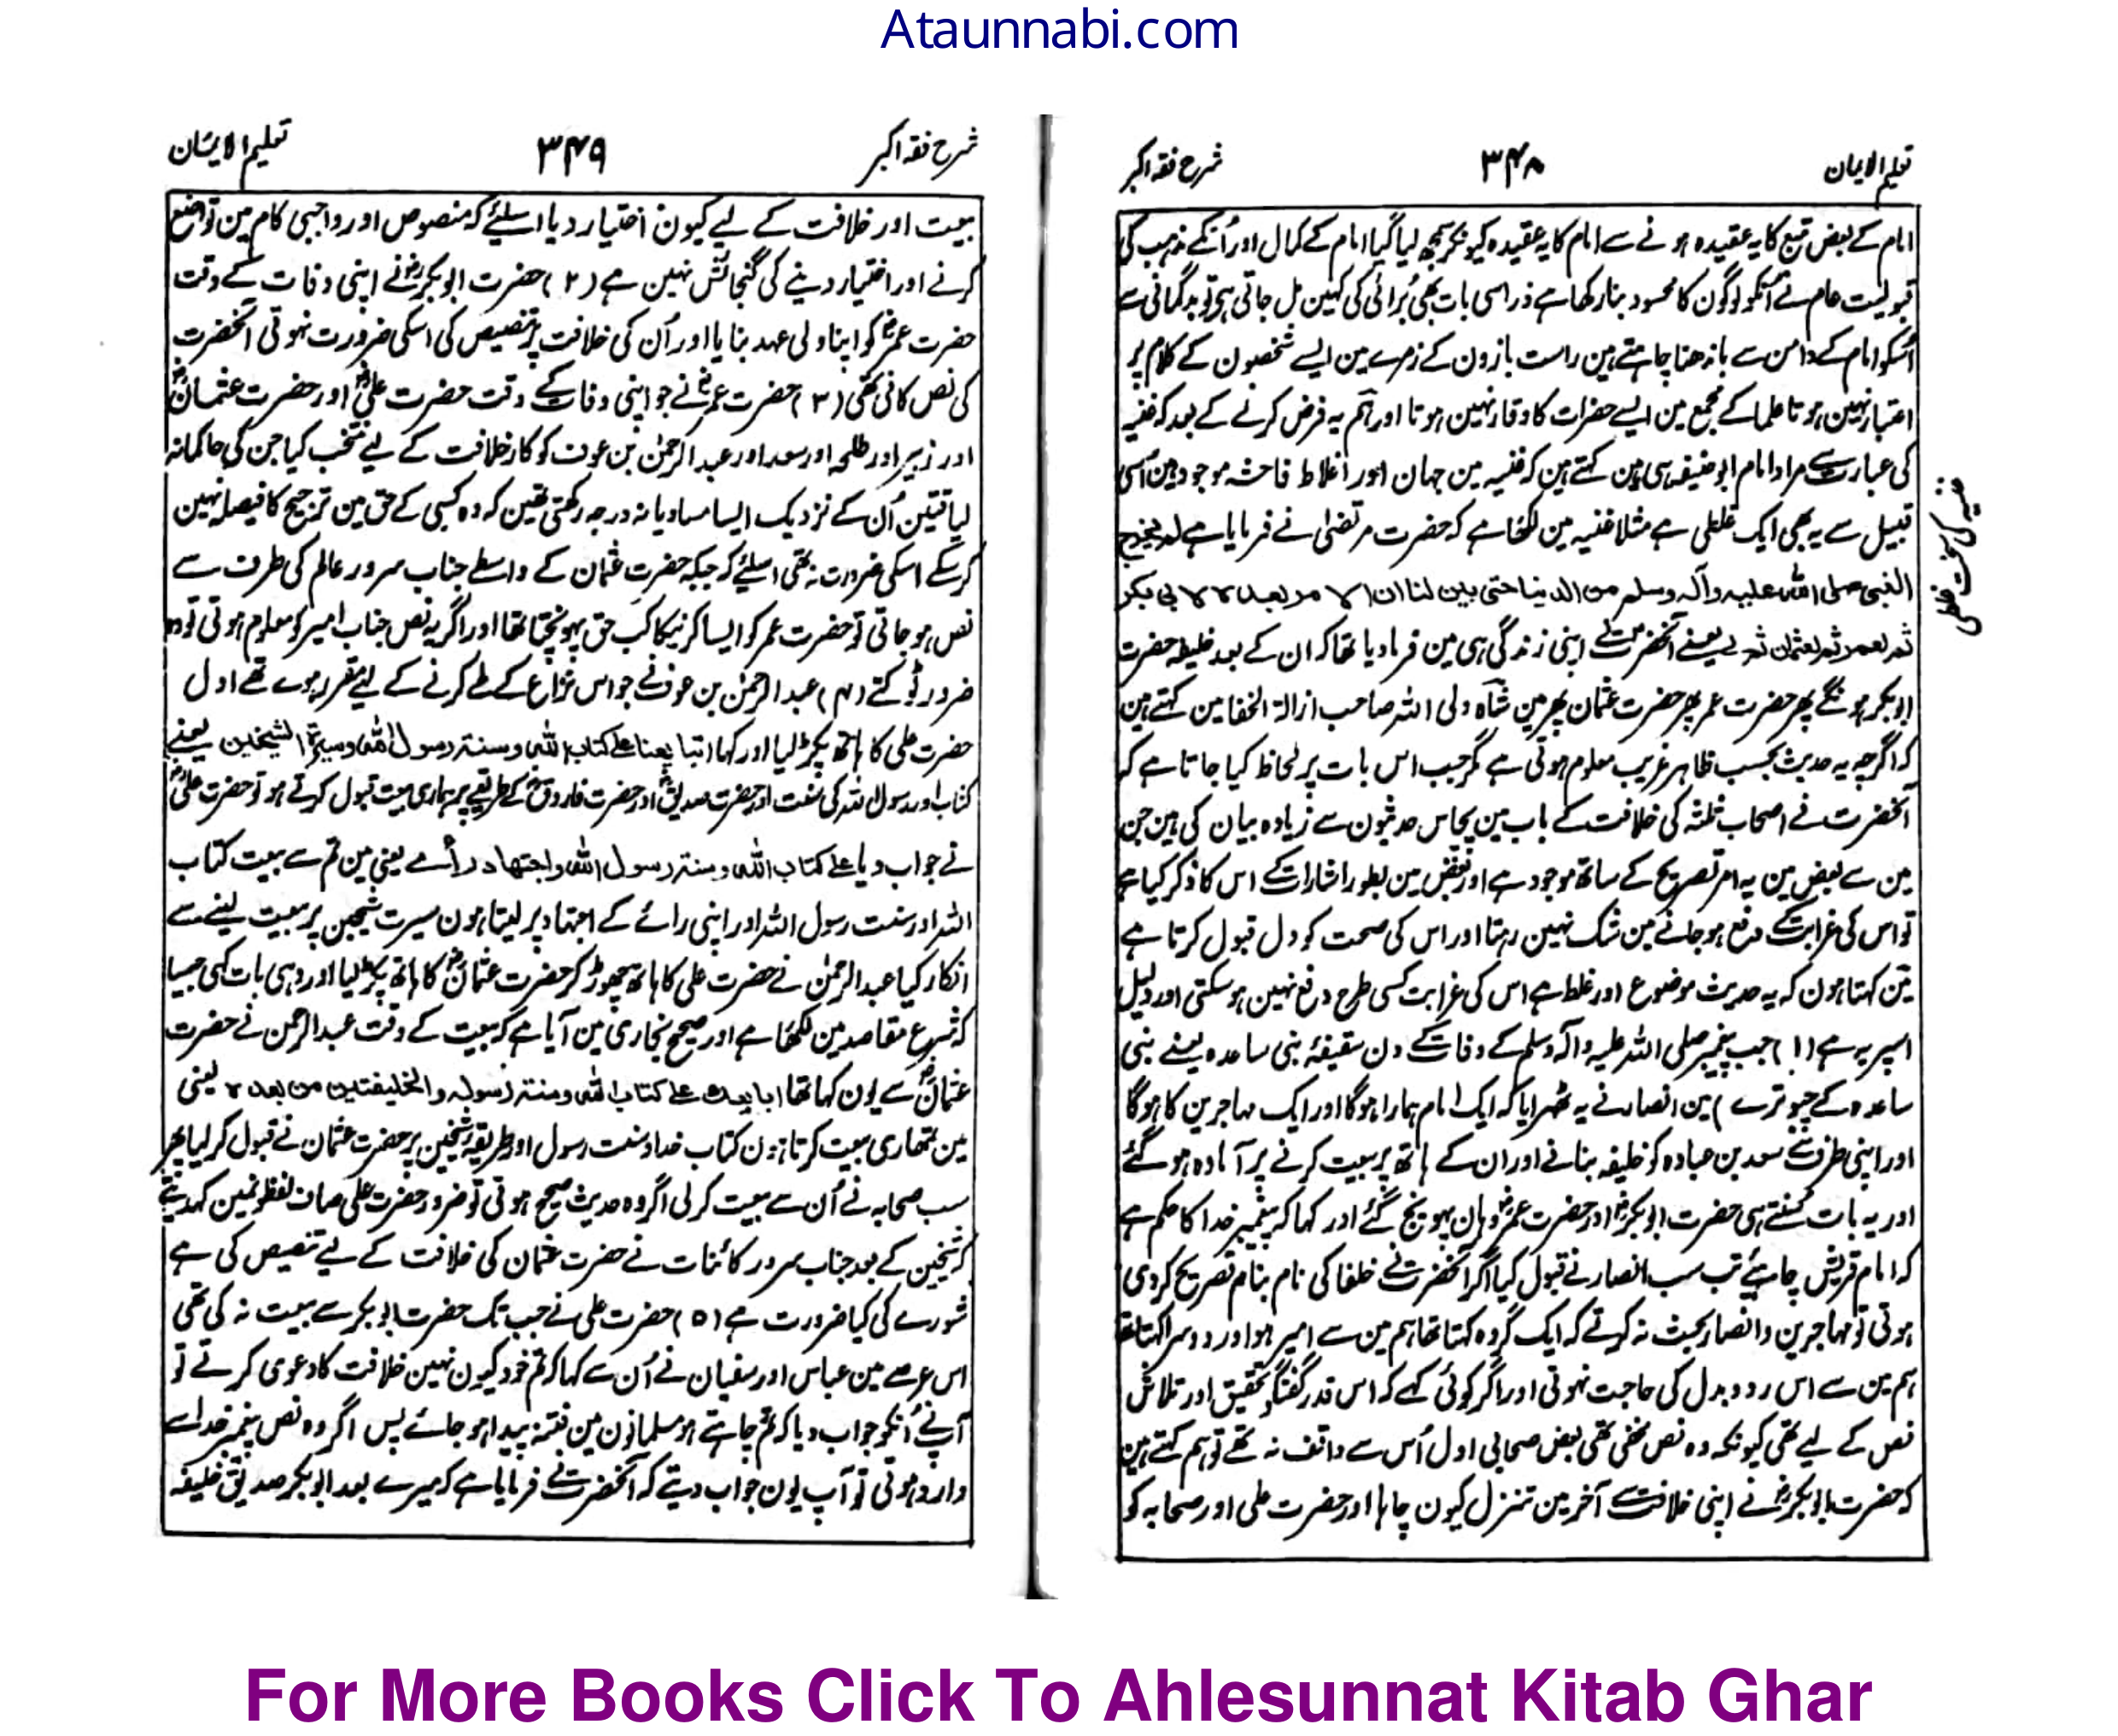 Ataunnabi.com
تعلیم الایمان ۳۴۸ شرح فقہ اکبر
امام کے بعض تبع کا یہ عقیدہ ہونے سے امام کا یہ عقیدہ کیونکر سمجھ لیا گیا امام کے کمال اور اُنکے مذہب کی
قبولیت عام نے اُنکو لوگون کا محسود بنا رکھا ہے ذرا سی بات بھی بُرائی کی کہین مل جاتی ہے تو بدگمانی سے
اُسکو امام کے دامن سے باندھنا چاہتے ہین راست بازون کے زمرے مین ایسے شخصون کے کلام پر
اعتبار نہین ہوتا علما کے مجمع مین ایسے حضرات کا وقار نہین ہوتا اور ہم یہ فرض کرنے کے بعد کہ غنیہ
کی عبارت سے مراد امام ابو حنیفہ ہی ہین کہتے ہین کہ غنیہ مین جہان اور اغلاط فاحشہ موجود ہین اُسی
قبیل سے یہ بھی ایک غلطی ہے مثلا غنیہ مین لکھا ہے کہ حضرت مرتضیٰ نے فرمایا ہے لم یخرج
النبی صلی اللہ علیہ وآلہ وسلم من الدنیا حتی بین لنا ان الامر بعدہ لابی بکر
ثم لعمر ثم لعثمان ثم لی یعنے آنحضرت نے اپنی زندگی ہی مین فرمادیا تھا کہ ان کے بعد خلیفہ حضرت
ابوبکر ہونگے پھر حضرت عمر پھر حضرت عثمان پھر مین شاہ ولی اللہ صاحب ازالۃ الخفا مین کہتے ہین
کہ اگرچہ یہ حدیث بحسب ظاہر غریب معلوم ہوتی ہے مگر جب اس بات پر لحاظ کیا جاتا ہے کہ
آنحضرت نے اصحاب ثلثہ کی خلافت کے باب مین پچاس حدیثون سے زیادہ بیان کی ہین جن
مین سے بعض مین یہ امر تصریح کے ساتھ موجود ہے اور بعض مین بطور اشارات کے اس کا ذکر کیا ہے
تو اس کی غرابت کے دفع ہوجانے مین شک نہین رہتا اور اس کی صحت کو دل قبول کرتا ہے
مین کہتا ہون کہ یہ حدیث موضوع اور غلط ہے اس کی غرابت کسی طرح دفع نہین ہوسکتی اور دلیل
اسپر یہ ہے (۱) جب پیغمبر صلی اللہ علیہ وآلہ وسلم کے وفات کے دن سقیفۂ بنی ساعدہ یعنے بنی
ساعدہ کے چبوترے) مین انصار نے یہ ٹھہرایا کہ ایک امام ہمارا ہوگا اور ایک مہاجرین کا ہوگا
اور اپنی طرف سے سعد بن عبادہ کو خلیفہ بنانے اور ان کے ہاتھ پر بیعت کرنے پر آمادہ ہوگئے
اور یہ بات سُنتے ہی حضرت ابوبکرؓ اور حضرت عمرؓ وہان پہونچ گئے اور کہا کہ پیغمبر خدا کا حکم ہے
کہ امام قریش چاہئے تب سب انصار نے قبول کیا اگر آنحضرت نے خلفا کی نام بنام تصریح کردی
ہوتی تو مہاجرین و انصار بحث نہ کرتے کہ ایک گروہ کہتا تھا ہم مین سے امیر ہو اور دوسرا کہتا تھا
ہم مین سے اس ردوبدل کی حاجت نہوتی اور اگر کوئی کہے کہ اس قدر گفتگو تحقیق اور تلاش
نص کے لیے تھی کیونکہ وہ نص مخفی تھی بعض صحابی اول اُس سے واقف نہ تھے تو ہم کہتے ہین
کہ حضرت ابوبکرؓ نے اپنی خلافت سے آخر مین تنزل کیون چاہا اور حضرت علی اور صحابہ کو
غنیہ کی سخت غلطی
شرح فقہ اکبر ۳۴۹ تعلیم الایمان
بیعت اور خلافت کے لیے کیون اختیار دیا اسلئے کہ منصوص اور واجبی کام مین تواضع
کرنے اور اختیار دینے کی گنجائش نہین ہے (۲) حضرت ابوبکرؓ نے اپنی وفات کے وقت
حضرت عمرؓ کو اپنا ولی عہد بنایا اور اُن کی خلافت پر تنصیص کی اسکی ضرورت نہوتی آنحضرت
کی نص کافی تھی (۳) حضرت عمرؓ نے جو اپنی وفات کے وقت حضرت علیؓ اور حضرت عثمانؓ
اور زبیر اور طلحہ اور سعد اور عبدالرحمٰن بن عوف کو کار خلافت کے لیے منتخب کیا جن کی حاکمانہ
لیاقتین اُن کے نزدیک ایسا مساویانہ درجہ رکھتی تھین کہ وہ کسی کے حق مین ترجیح کا فیصلہ نہین
کرسکے اسکی ضرورت نہ تھی اسلئے کہ جبکہ حضرت عثمان کے واسطے جناب سرور عالم کی طرف سے
نص ہوجاتی تو حضرت عمر کو ایسا کرنیکا کب حق پہونچتا تھا اور اگر یہ نص جناب امیر کو معلوم ہوتی تو وہ
ضرور ٹوکتے (۴) عبدالرحمٰن بن عوف نے جو اس نزاع کے طے کرنے کے لیے مقرر ہوے تھے اول
حضرت علی کا ہاتھ پکڑ لیا اور کہا اتبایعنا علے کتاب اللہ وسنۃ رسول اللہ وسیرۃ الشیخین یعنے
کتاب اور رسول اللہ کی سنت اور حضرت صدیقؓ اور حضرت فاروقؓ کے طریقے پر ہماری بیعت قبول کرتے ہو تو حضرت علیؓ
نے جواب دیا علے کتاب اللہ وسنۃ رسول اللہ واجتهاد رأے یعنی مین تم سے بیعت کتاب
اللہ اور سنت رسول اللہ اور اپنی رائے کے اجتہاد پر لیتا ہون سیرت شیخین پر بیعت لینے سے
انکار کیا عبدالرحمٰن نے حضرت علی کا ہاتھ چھوڑ کر حضرت عثمانؓ کا ہاتھ پکڑ لیا اور وہی بات کہی جیسا
کہ شرح مقاصد مین لکھا ہے اور صحیح بخاری مین آیا ہے کہ بیعت کے وقت عبدالرحمن نے حضرت
عثمانؓ سے یون کہا تھا ابایعک علے کتاب اللہ وسنۃ رسولہ والخلیفتین من بعدہ یعنی
مین تمھاری بیعت کرتا ہون کتاب خدا وسنت رسول اور طریقۂ شیخین پر حضرت عثمان نے قبول کرلیا پھر
سب صحابہ نے اُن سے بیعت کرلی اگر وہ حدیث صحیح ہوتی تو ضرور حضرت علی صاف لفظونمین کہدیتے
کہ شیخین کے بعد جناب سرور کائنات نے حضرت عثمان کی خلافت کے لیے تنصیص کی ہے
شورے کی کیا ضرورت ہے (۵) حضرت علی نے جب تک حضرت ابوبکر سے بیعت نہ کی تھی
اس عرصے مین عباس اور سفیان نے اُن سے کہا کہ تم خود کیون نہین خلافت کا دعوی کرتے تو
آپنے اُنکو جواب دیا کہ تم چاہتے ہو مسلمانون مین فتنہ پیدا ہوجائے پس اگر وہ نص پیغمبر خدا سے
وارد ہوتی تو آپ یون جواب دیتے کہ آنحضرت نے فرمایا ہے کہ میرے بعد ابوبکر صدیق خلیفہ
For More Books Click To Ahlesunnat Kitab Ghar